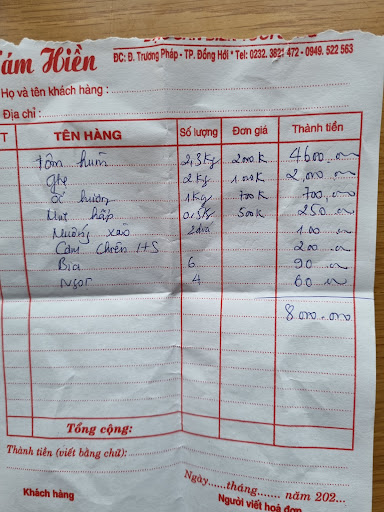 Tám Hiền
ĐC: Đ. Trương Pháp - TP. Đồng Hới * Tel: 0232. 3821 472 - 0949. 522 563
Họ và tên khách hàng :
Địa chỉ :
T TÊN HÀNG Số lượng Đơn giá Thành tiền
tôm hùm 2,3kg 2000K 4600.000
ghẹ 2kg 1.000K 2,000.000
ốc hương 1kg 700K 700.000
Mực hấp 0,5kg 500K 250.000
Muống xào 2 đĩa 100
Cơm chiên HS 200
Bia 6 90
Ngọt 4 60
8000.000
Tổng cộng:
Thành tiền (viết bằng chữ):
Ngày......tháng....... năm 202...
Khách hàng Người viết hoá đơn